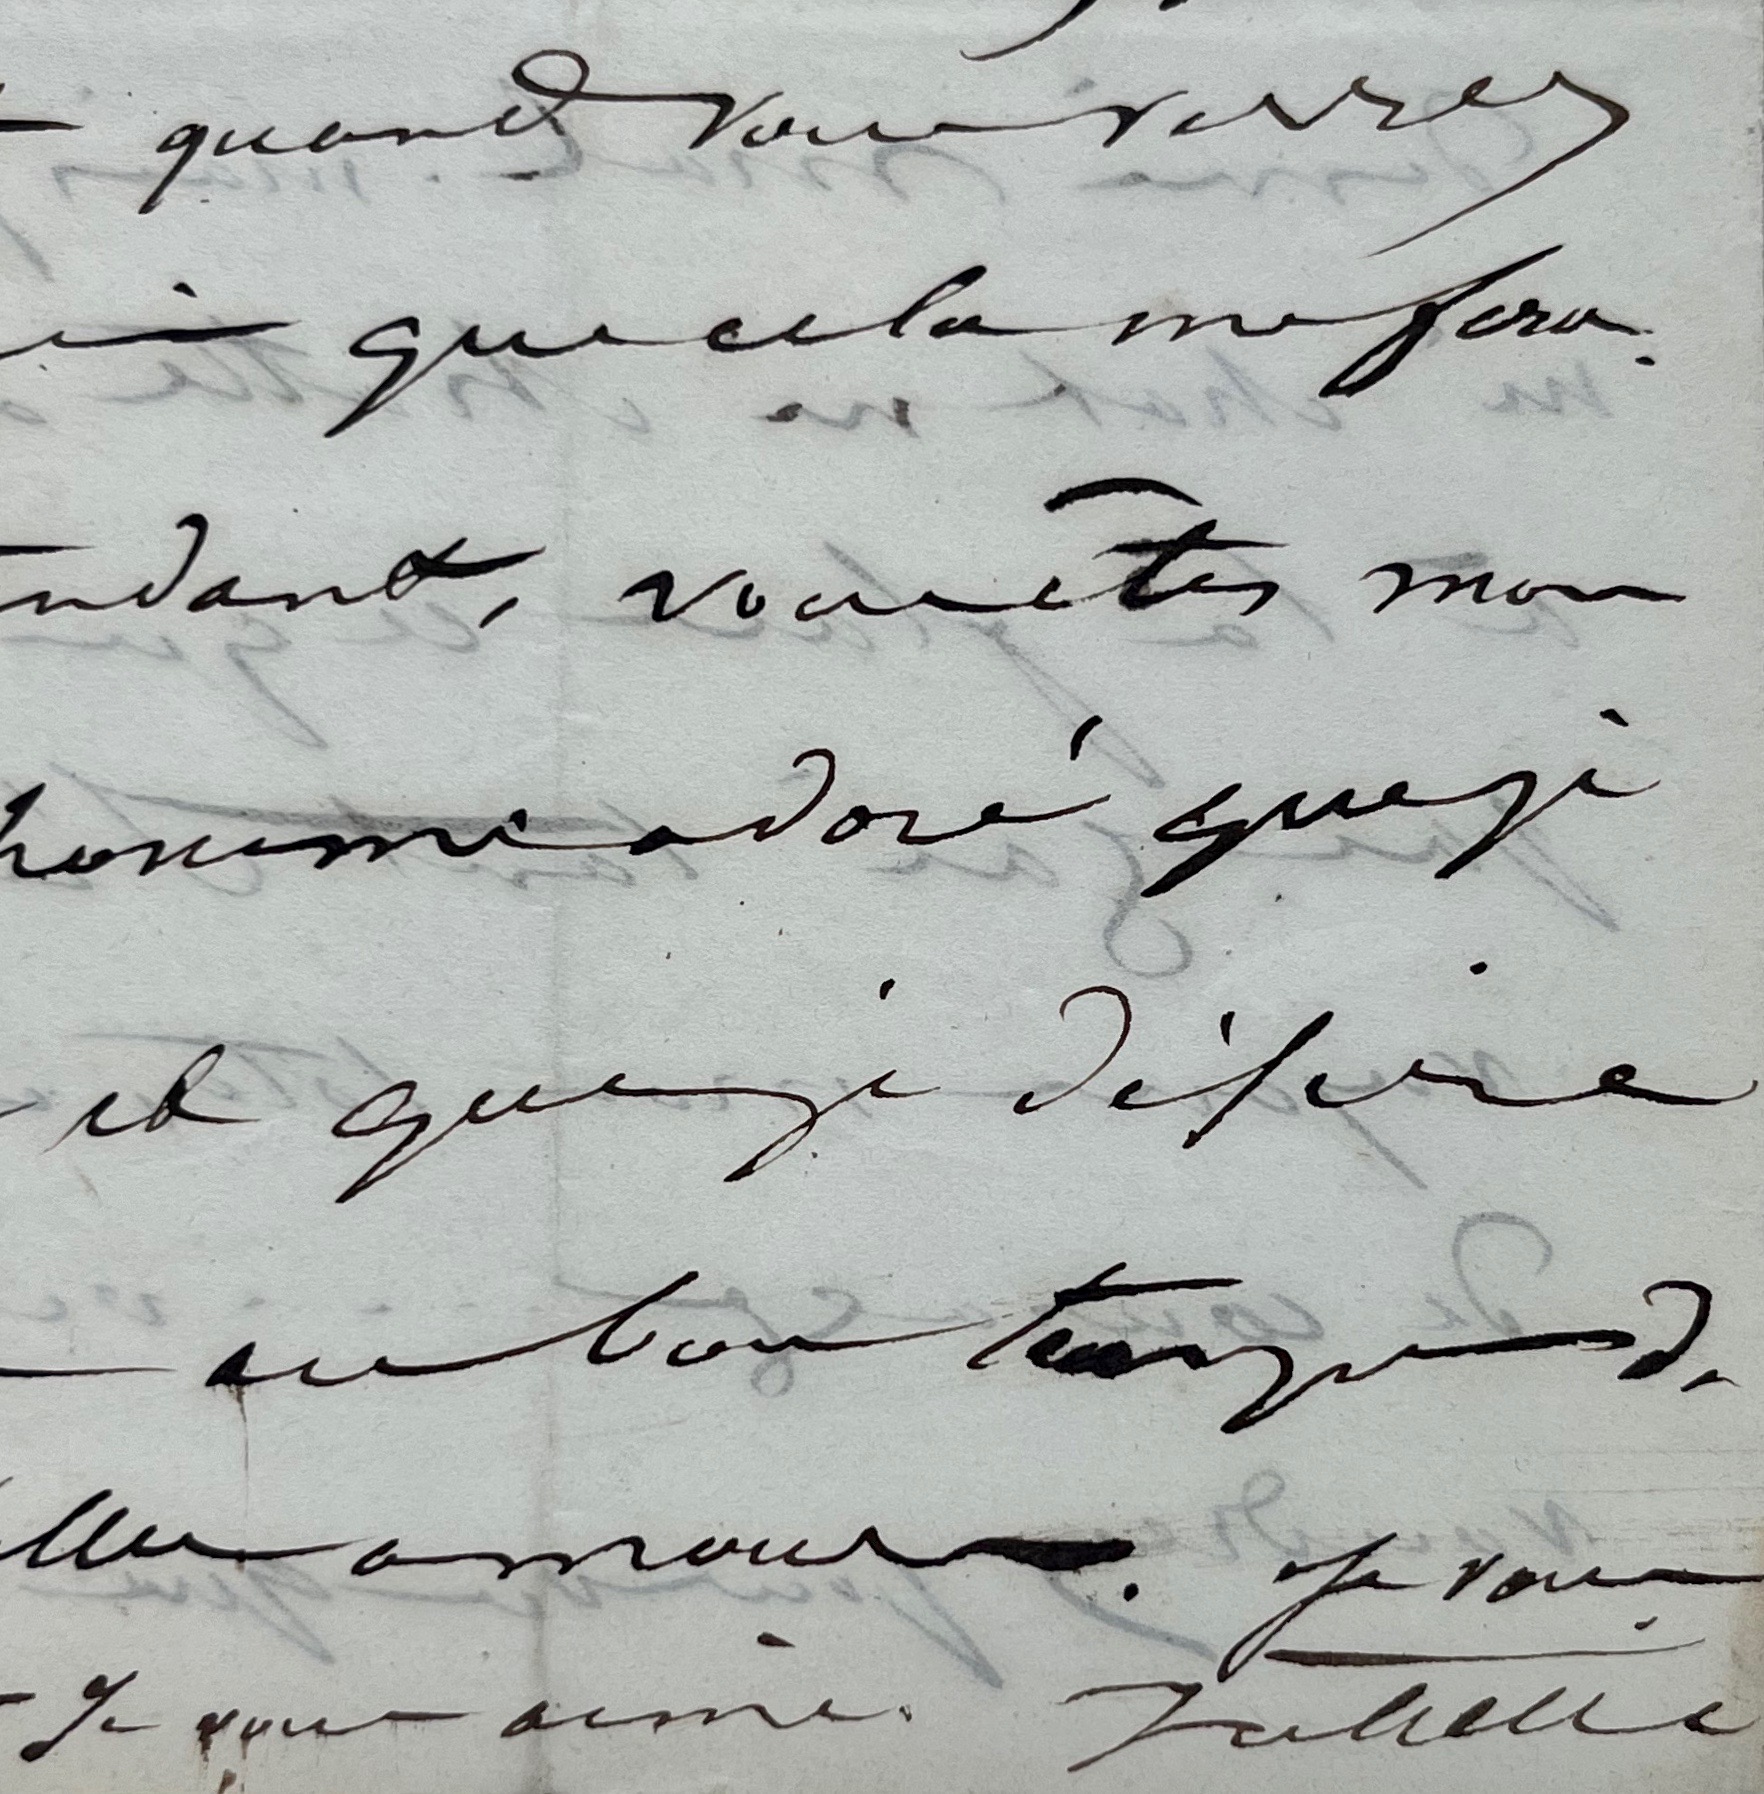 quand vous verrez
que cela me fera.
ndant, vous êtes mon
homme adoré que je
et que je désire
au bon temps de
elles amours. Je vous
Je vous aime. Isabelle